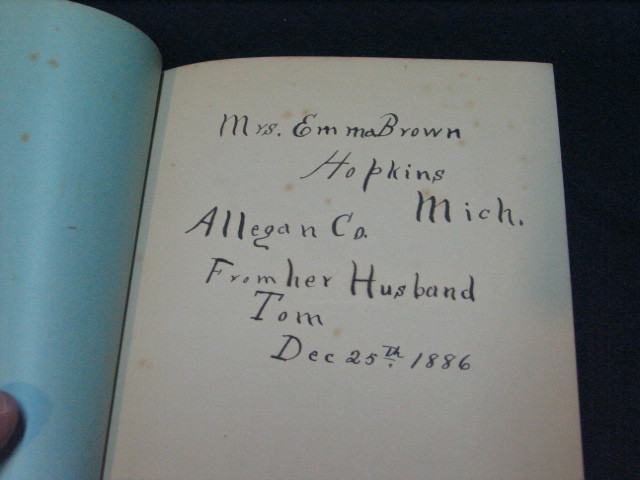 Mrs. Emma Brown
Hopkins
Mich.
Allegan Co.
From her Husband
Tom
Dec 25th. 1886